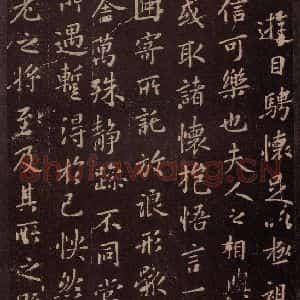 遊目騁懷足以極視
信可樂也夫人之相與
或取諸懷抱悟言一
因寄所託放浪形骸
萬殊靜躁不同當
所遇暫得於己怏然
老之將至及其所之
Shufawang.CN